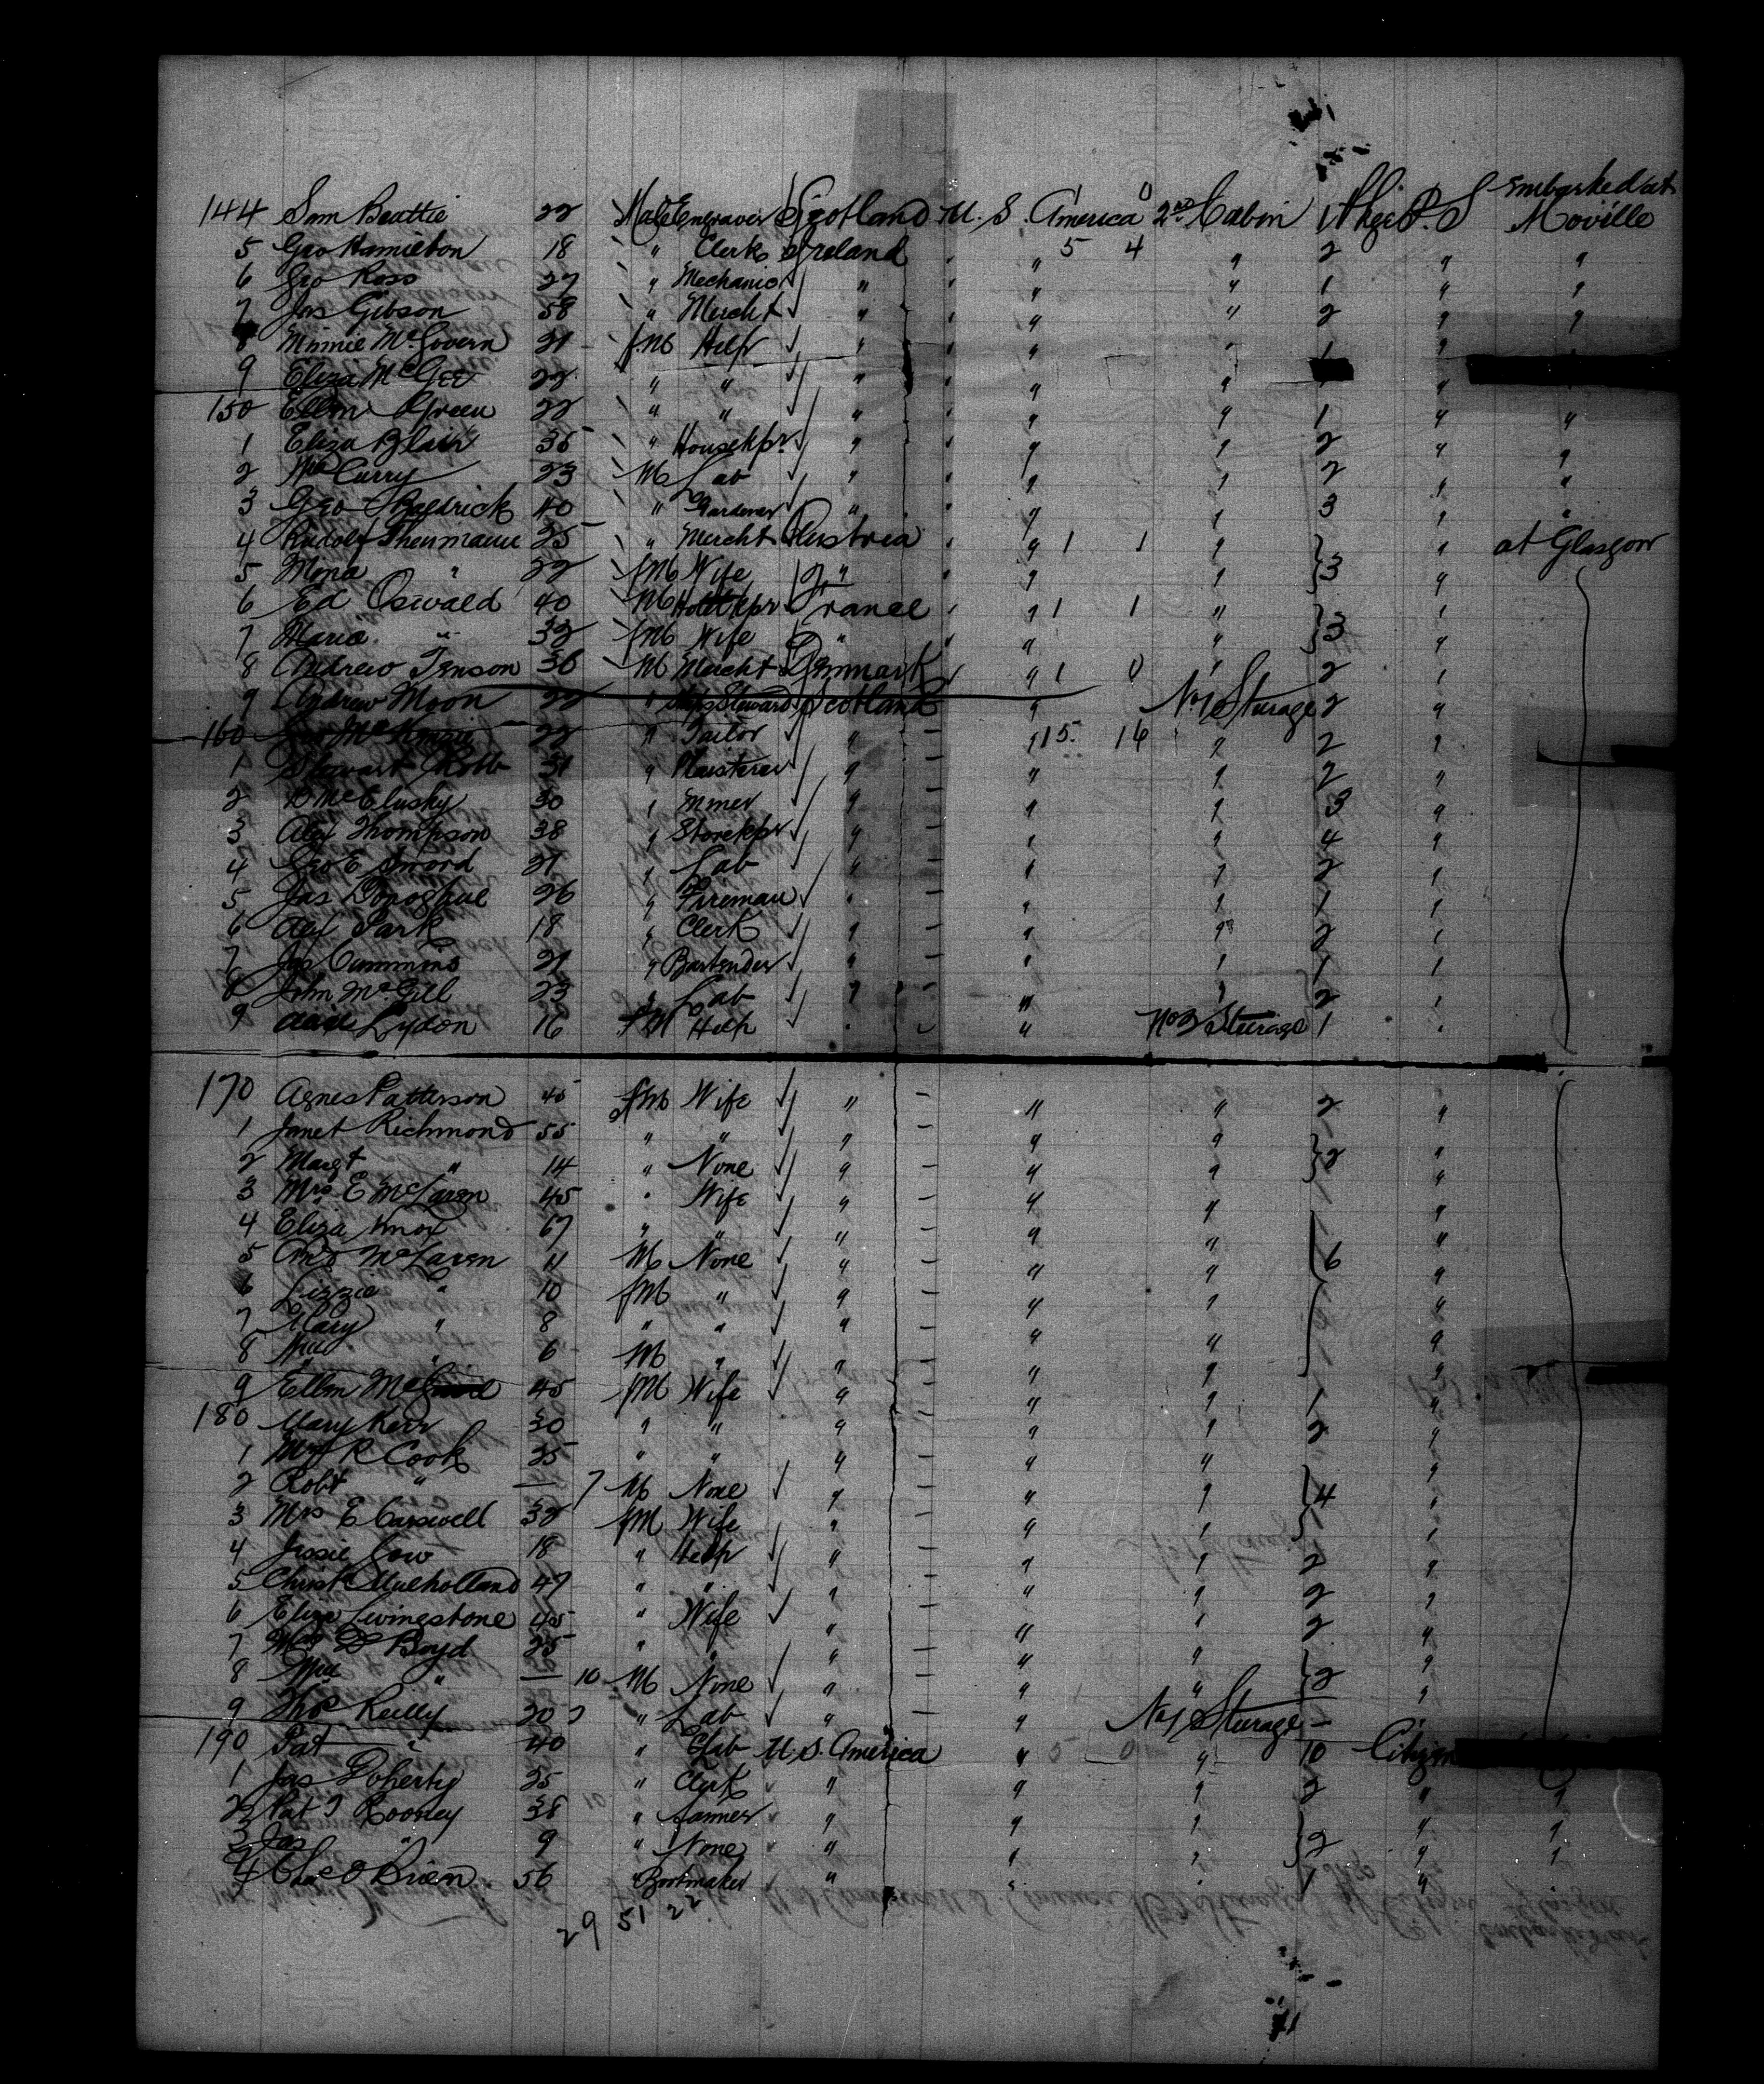 Embarked at
144 Sam Beattie 22 Male Engraver Scotland U. S. America 2nd Cabin 1 P. S Moville
5 Geo Hamilton 18 " Clerk Ireland " 5 4 " 2 " "
6 Geo Ross 27 " Mechanic " " " 1 " "
7 Jas Gibson 58 " Mercht " " " 2 " "
8 Minnie McGovern 21 fM Help " " " 1 "
9 Eliza McGee 22 " " " " " "
150 Ellen Green 22 " " " " " 1 " "
1 Eliza Blair 35 " Housekpr " " " 2 " "
2 Curry 23 M Lab " " " 2 " "
3 Geo 40 " Gardener " " " 3 " "
4 Rudolf 25 " Mercht Austria " 1 1 " " at Glasgow
5 " 22 fM Wife " " " 3 "
6 Ed Oswald 40 M France " 1 1 " "
7 Maria " 32 fM Wife " " " 3 "
8 Andrew Jenson 36 M Mercht Denmark " 1 0 " 2 "
9 Andrew Moon 22 " Steward Scotland " No 1 Sturage 2 "
160 McKenzie 22 " Tailor " " 15 16 " 2 "
1 Stewart Robb 31 " Plasterer " " " 2 "
2 McClusky 30 " " " " 3 "
3 Alex Thompson 38 " Storekpr " " " 4 "
4 Geo E Sword 21 " Lab " " " 2 "
5 Jas Donoghue 26 " Fireman " " " 1 "
6 Alex Park 18 " Clerk " " " 2 "
7 Jas Cummins 21 " Bartender " " " 1 "
8 John McGill 23 " Lab " " " 2 "
9 Lydon 16 fM Help " " No 3 Sturage 1 "
170 Agnes Patterson 45 fM Wife " - " " 2 "
1 Janet Richmond 55 " " " - " "
2 Margt " 14 " None " - " " 2 "
3 Mrs E McLaren 45 " Wife " - " " "
4 Eliza Knox 67 " " " - " " "
5 McLaren 11 M None " - " " 6 "
6 Lizzie " 10 fM " " - " " "
7 Mary " 8 " " " - " " "
8 " 6 M " " - " " "
9 Ellen 45 fM Wife " - " " 1 "
180 Mary Kerr 30 " " " - " " 2 "
1 Mrs R Cook 25 " " " - " " "
2 Robt " — 7 M None " - " " 4 "
3 Mrs E Carswell 32 fM Wife " - " " "
4 Jessie Gow 18 " Help " - " " 2 "
5 Christ Mulholland 47 " " " - " " 2 "
6 Eliza Livingstone 45 " Wife " - " " 2 "
7 Boyd 25 " " " - " " "
8 " — 10 M None " - " " 2 "
9 Thos Reilly 20 " Lab " - " No 1 Sturage - "
190 Pat " 40 " Lab U. S. America " 5 0 " 10 Citizen
1 Jas Doherty 25 " Clerk " " " 2 " "
2 Pat J Rooney 38 " farmer " " " " "
3 Jas " 9 " None " " " 2 " "
4 O'Brien 56 " Bootmaker " " " 1 "
29 51 22